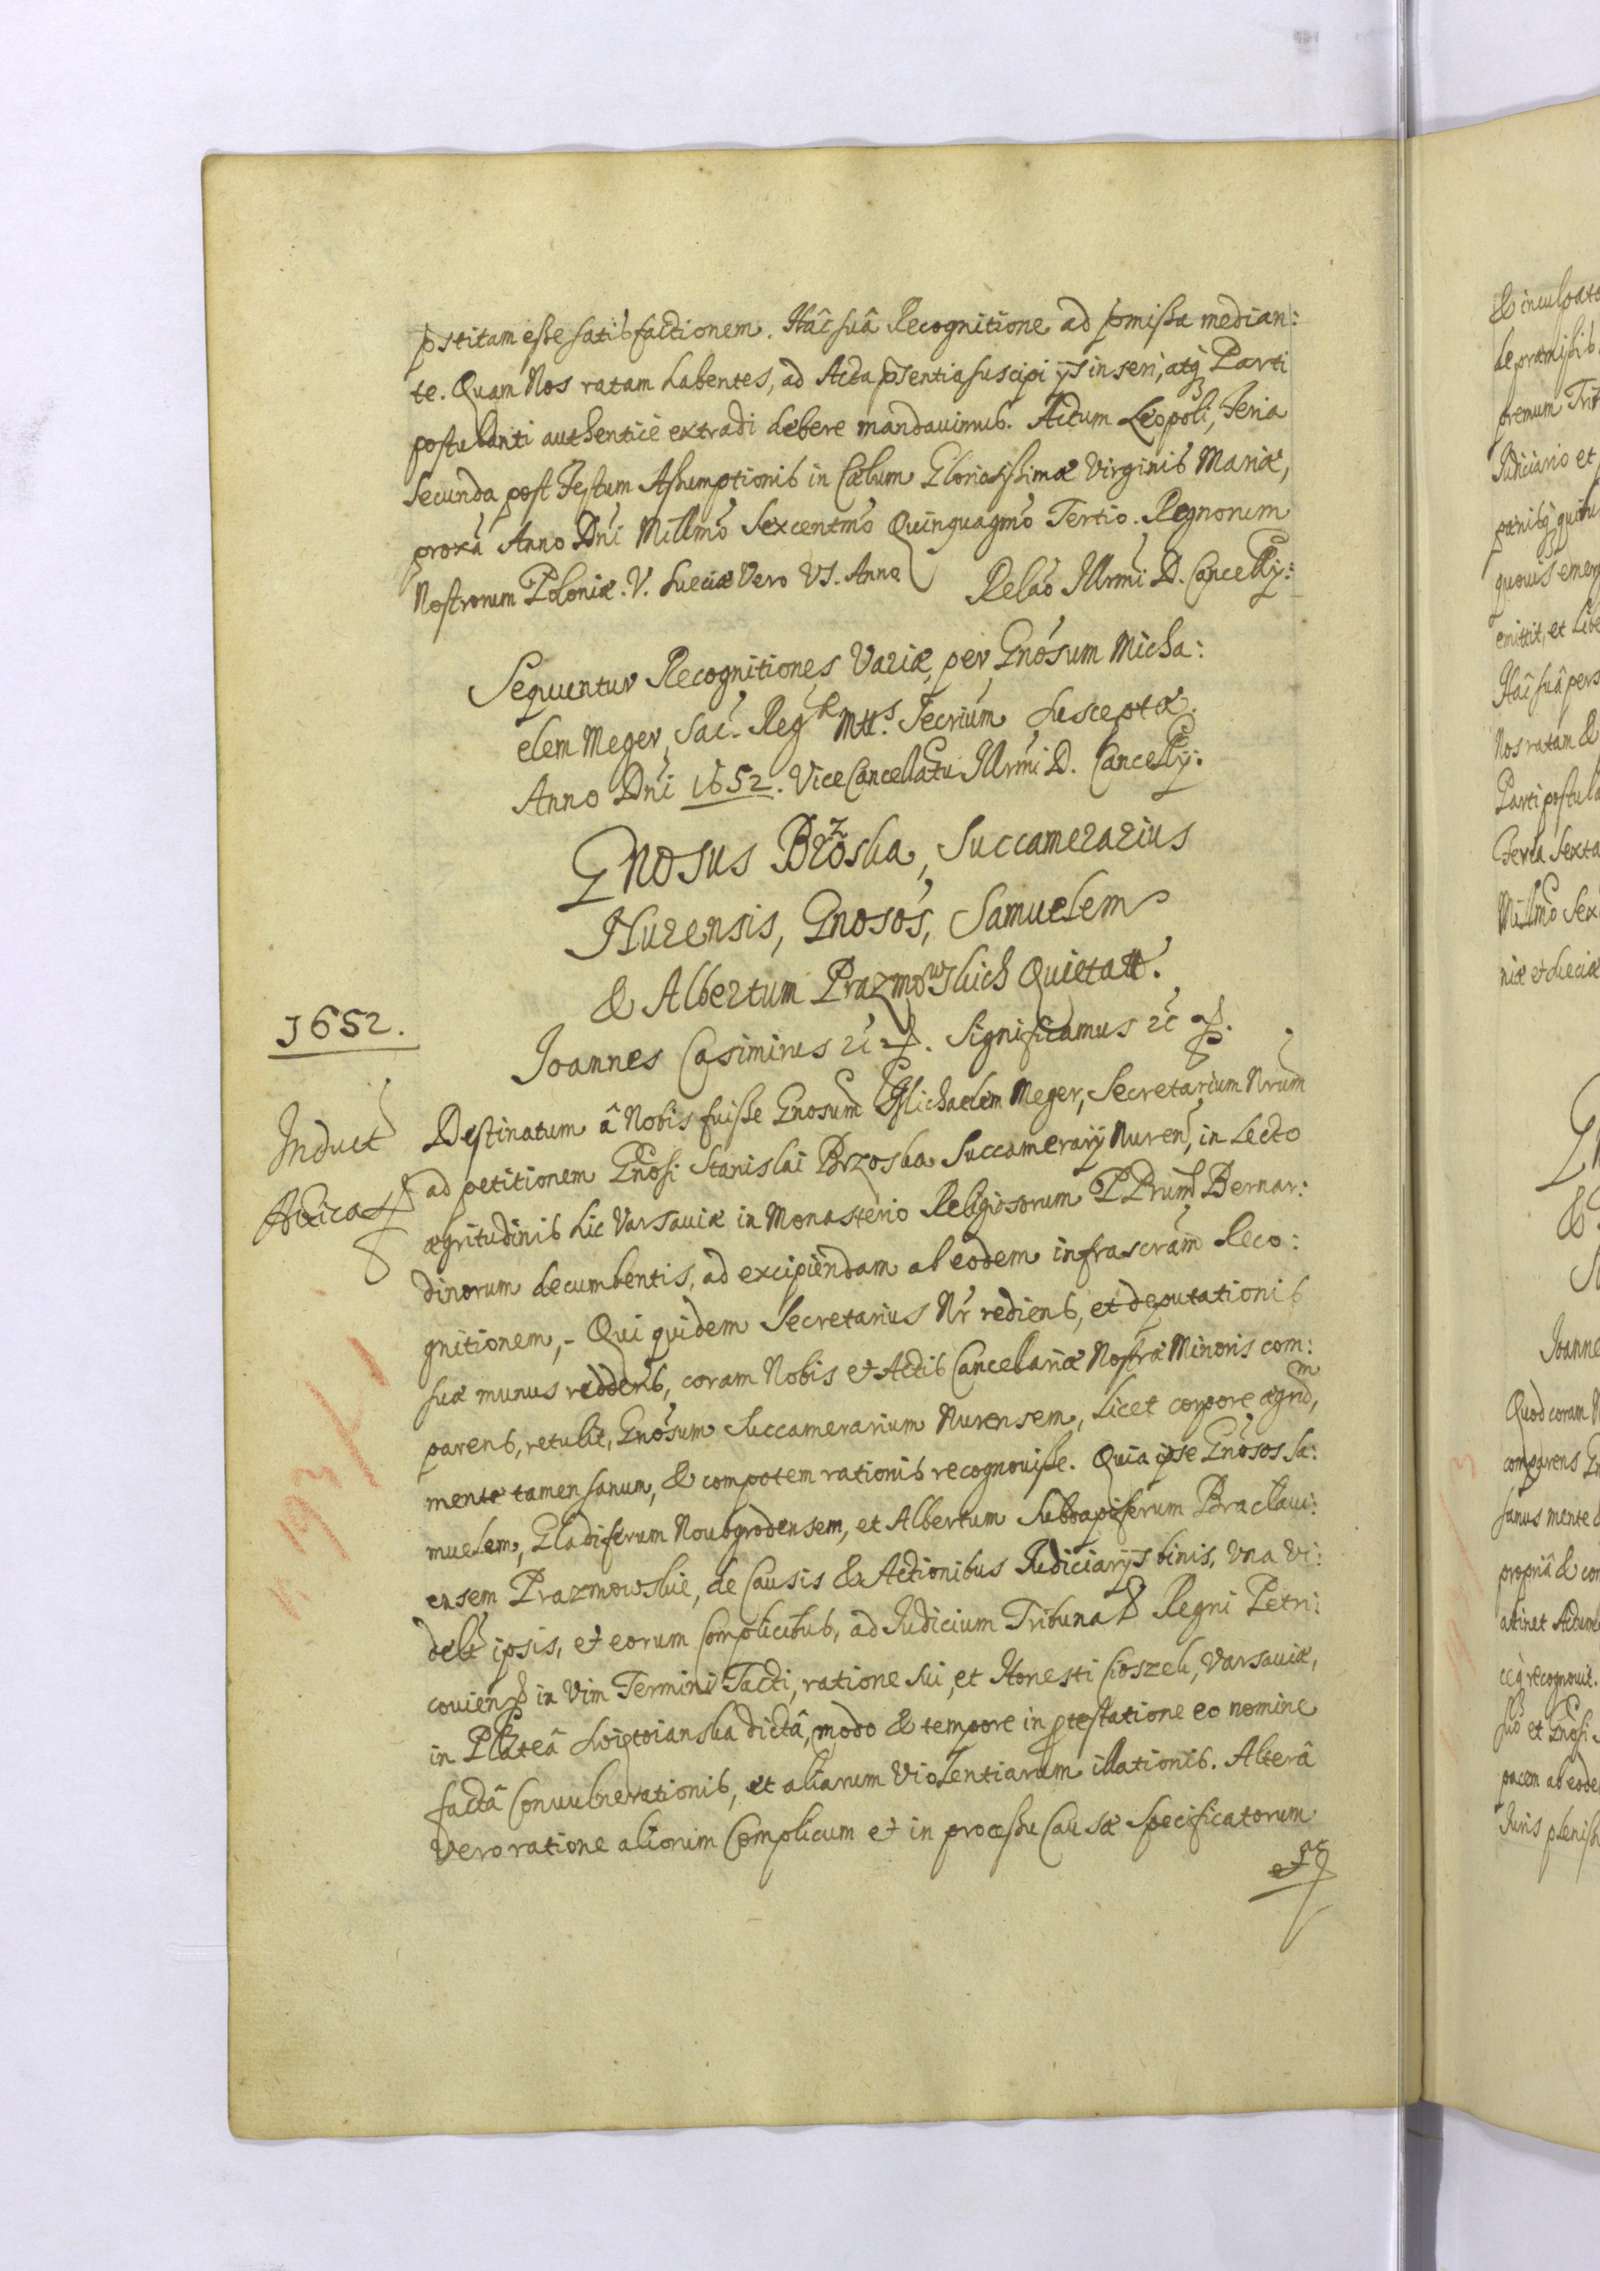 pstitam esse satisfactionem. Hac suâ Recognitione ad pmissa median:
te. Quam Nos ratam habentes, ad Acta psentia suscipi ijs inseri, atq Parti
postulanti authenticè extradi debere mandavimus. Actum Leopoli, Feria
secunda post Festum Assumptionis in Cœlum Gloriosissimæ Virginis Mariæ,
proxa Anno Dni Millmo Sexcentmo Quinquagmo Tertio. Regnorum
Nostrorum Poloniæ. V. Sueciæ Vero VI. Anno
Relao Illrmi D. Cancellrij:
Sequuntur Recognitiones Variæ, per Gnosum Micha:
elem Meger, Sac. Reg Mtts. Secrium, susceptæ.
Anno Dni 1652. Vice Cancellatu Illrmi D. Cancellrij.
Gnosus Brzoska, Succamerarius
Nurensis, Gnosos, Samuelem
& Albertum Prazmowskich Quietat.
1652.
Joannes Casimirus &c. Significamus &c.
Induct
Destinatum â Nobis fuisse Gnosum Michaelem Meger, Secretarium Nrum
ad petitionem Gnosi Stanislai Brzoska Succamerarij Nuren, in Lecto
ægritudinis hic Varsaviæ in Monasterio Religiosorum PPrum Bernar:
dinorum decumbentis, ad excipiendam ab eodem infrascram Reco:
gnitionem,- Qui quidem Secretarius Nr rediens, et deputationis
suæ munus reddens, coram Nobis et Actis Cancellariæ Nostræ Minoris com:
parens, retulit, Gnosum Succamerarium Nurensem, licet corpore ægrum,
mente tamen sanum, & compotem rationis recognovisse. Quia ipse Gnosos Sa:
muelem, Gladiferum Novogrodensem, et Albertum Subdapiferum Braclavi:
ensem Prazmowskie, de Causis & Actionibus Judiciarijs binis, Una vi:
delt ipsis, et eorum Complicibus, ad Judicium Tribunal Regni Petri:
covien in Vim Termini Tacti, ratione sui, et Honesti Cioszek, Varsaviæ,
in Plateâ Swiętoianska dictâ, modo & tempore in ptestatione eo nomine
factâ Convulnerationis, et aliarum Violentiarum illationis. Alterâ
Vero ratione aliorum Complicum et in processu Causæ Specificatorum
et